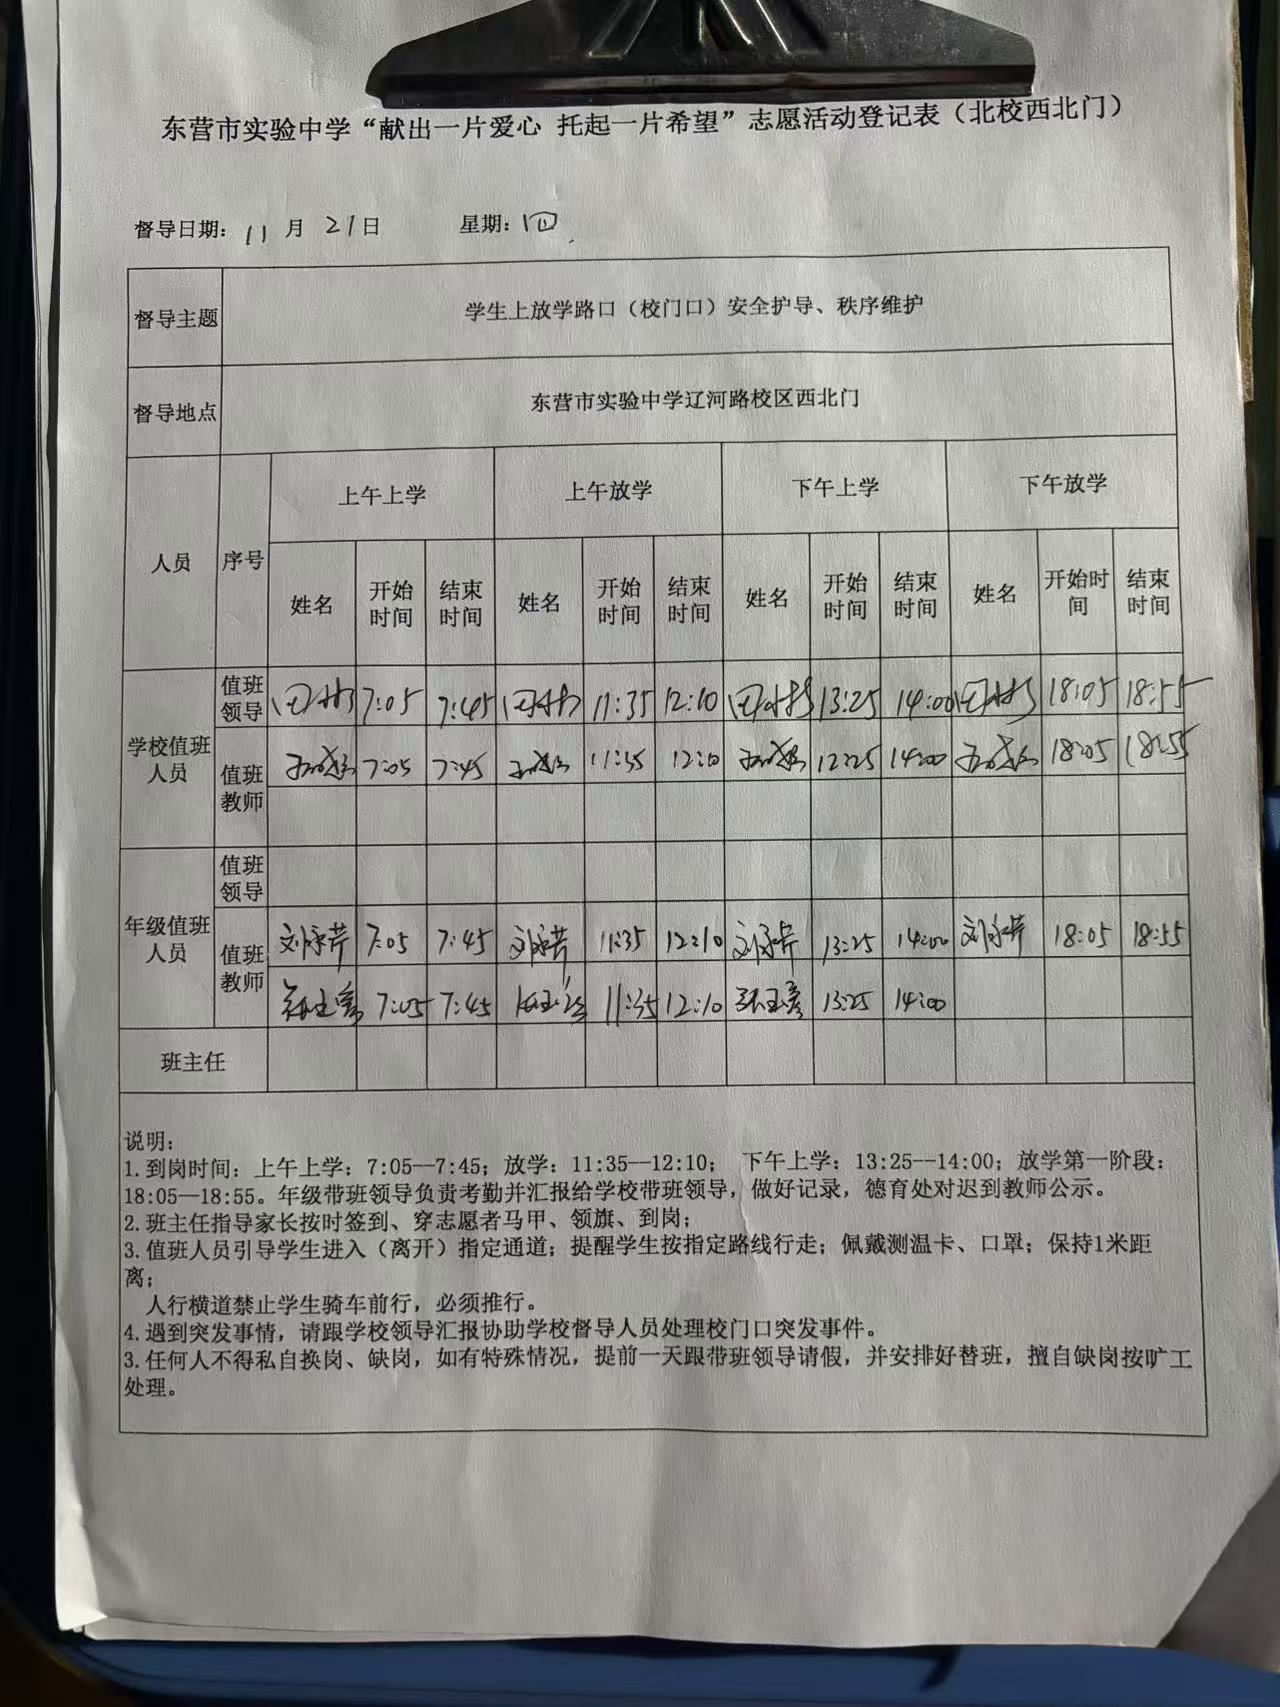 东营市实验中学“献出一片爱心 托起一片希望”志愿活动登记表（北校西北门）
督导日期：11月21日 星期：四
督导主题 学生上放学路口（校门口）安全护导、秩序维护
督导地点 东营市实验中学辽河路校区西北门
人员 序号 上午上学 上午放学 下午上学 下午放学
姓名 开始时间 结束时间 姓名 开始时间 结束时间 姓名 开始时间 结束时间 姓名 开始时间 结束时间
学校值班人员
值班领导 7:05 7:45 11:35 12:10 13:25 14:00 18:05 18:55
值班教师 7:05 7:45 11:35 12:10 12:25 14:00 18:05 18:55
年级值班人员
值班领导
值班教师 刘永芹 7:05 7:45 刘永芹 11:35 12:10 刘永芹 13:25 14:00 刘永芹 18:05 18:55
7:05 7:45 11:35 12:10 13:25 14:00
班主任
说明：
1.到岗时间：上午上学：7:05--7:45；放学：11:35--12:10； 下午上学：13:25--14:00；放学第一阶段：
18:05--18:55。年级带班领导负责考勤并汇报给学校带班领导，做好记录，德育处对迟到教师公示。
2.班主任指导家长按时签到、穿志愿者马甲、领旗、到岗；
3.值班人员引导学生进入（离开）指定通道；提醒学生按指定路线行走；佩戴测温卡、口罩；保持1米距
离；
人行横道禁止学生骑车前行，必须推行。
4.遇到突发事情，请跟学校领导汇报协助学校督导人员处理校门口突发事件。
3.任何人不得私自换岗、缺岗，如有特殊情况，提前一天跟带班领导请假，并安排好替班，擅自缺岗按旷工
处理。